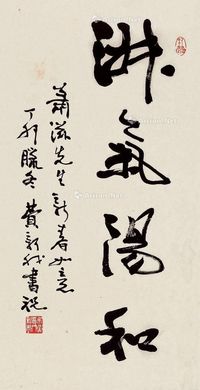 淑氣陽和
蕭滋先生新春如意
丁卯臘冬費新我書祝